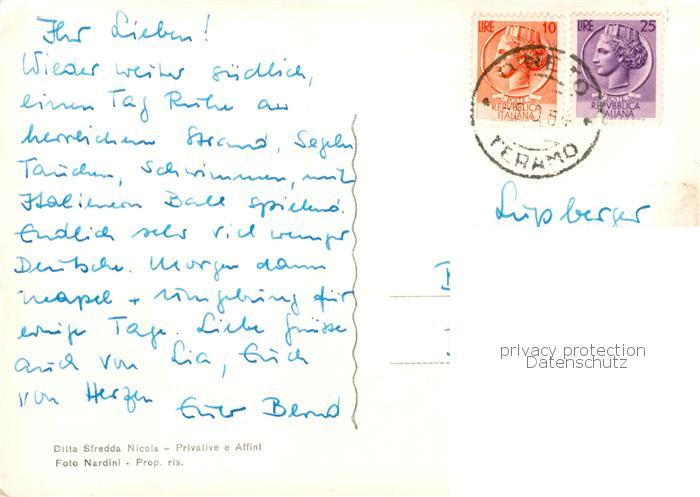 Ihr Lieben!
Wieder weiter südlich,
einen Tag Ruhe an
herrlichem Strand, Segeln
Tauchen, Schwimmen, mit
Italienern Ball spielend.
Endlich sehr viel weniger
Deutsche. Morgen dann
Neapel + Umgebung für
einige Tage. Liebe Grüsse
auch von Lia, Euch
von Herzen
Euer Bernd
Ditta Sfredda Nicola - Privative e Affini
Foto Nardini - Prop. ris.
LIRE 10
POSTE
REPVBBLICA
ITALIANA
LIRE 25
POSTE
REPVBBLICA
ITALIANA
TERAMO
Lüpsberger
privacy protection
Datenschutz